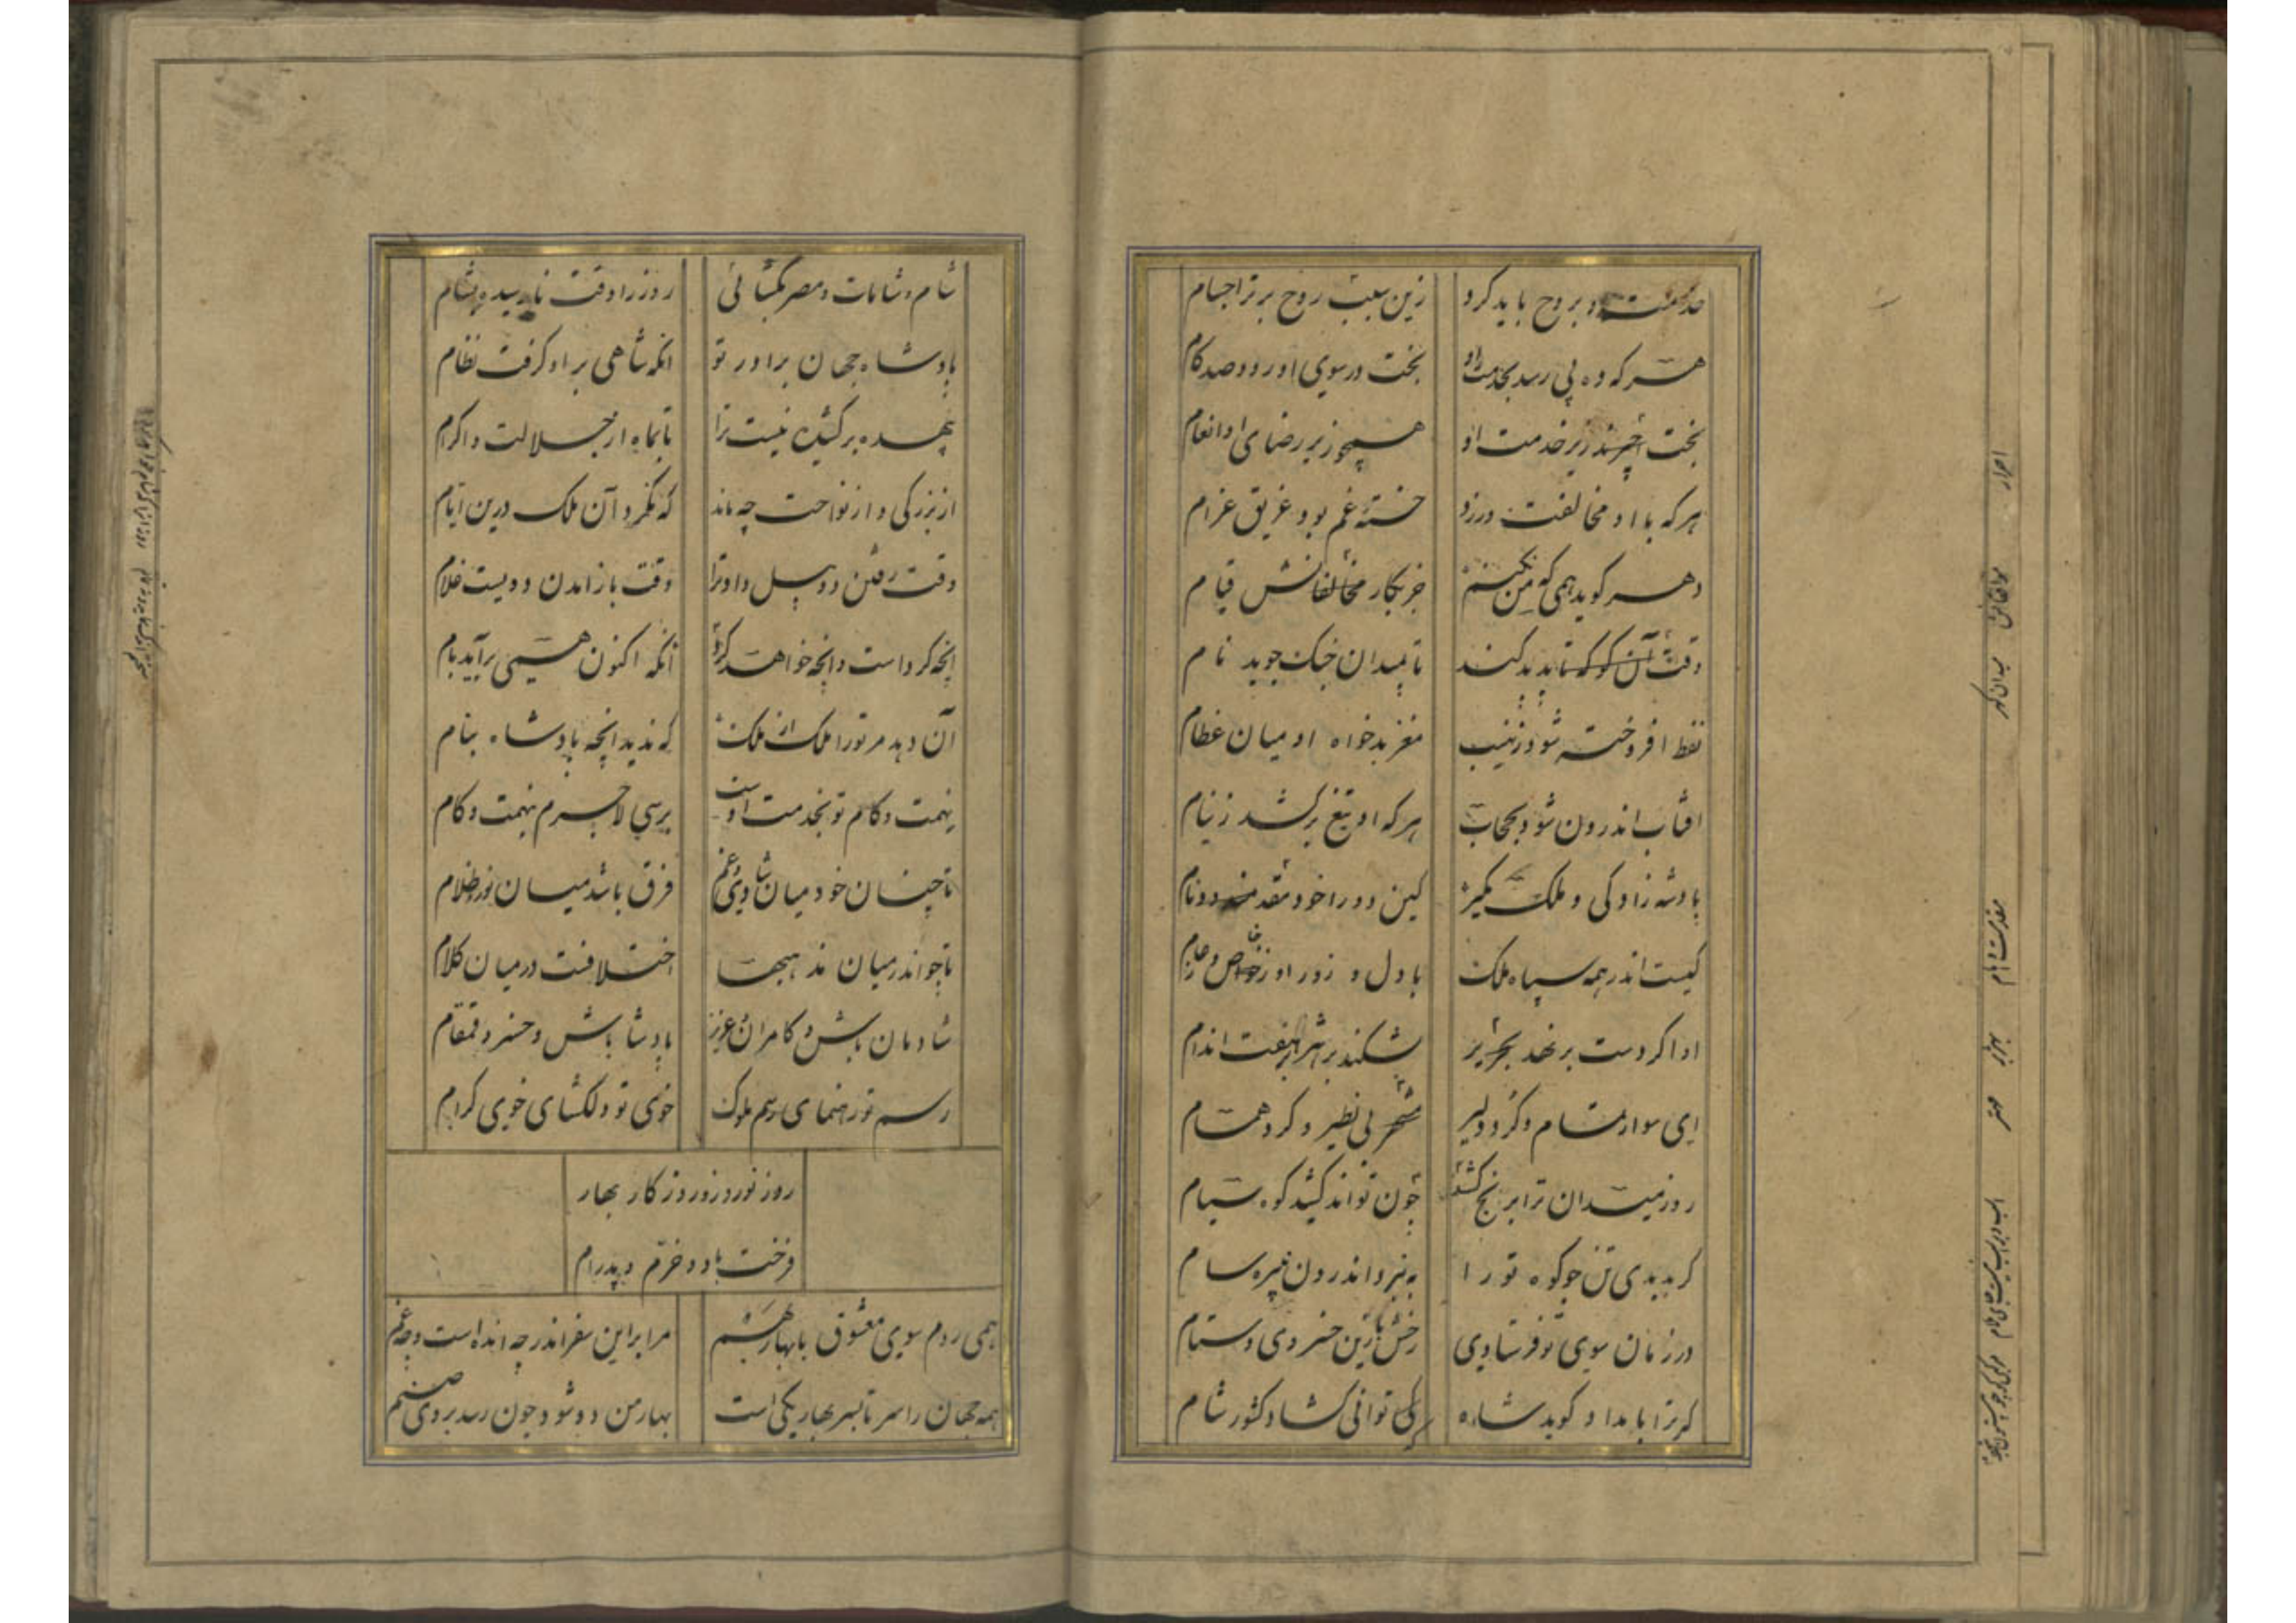 خدمت او بروح باید کرد زین سبب روح برتر اجسام
هر که ده پی رسد بخدمت او بخت در سوی او رود صد کام
بخت زیر خدمت او همچو زیر رضای او انعام
هر که با او مخالفت ورزد خسته غم بود غریق غرام
دهر کوید همی که من نکنم جز بکار مخالفانش قیام
وقت آن کو که تا پدید کند تا بمیدان جنک جوید نام
نفط افروخته شود ز نهیب مغز بدخواه او میان عظام
افتاب اندرون شود بحجاب هر که او تیغ برکشد ز نیام
پادشه زادکی و ملک بکیر کین دو را خود مقدمند دو نام
کیست اندر همه سپاه ملک با دل و زور او ز خاص و ز عام
او اکر دست برنهد بهزبر بشکند بر هزبر هفت اندام
ای سوار تمام و کرد دلیر مهتر بی نظیر و کرد همام
روز میدان ترا برنج کشد چون تواند کشید کوه سیام
کر بدیدی تن چو کوه تو را به نبرد اندرون نبیره سام
در زمان سوی تو فرستادی رخش با زین خسروی و ستام
کر ترا بامداد کوید شاه کی توانی کشاد کشور شام
شام و شامات و مصر بکشائی روز را وقت نارسیده بشام
پادشاه جهان برادر تو انکه شاهی بر او کرفت نظام
بیهده برکشیده نیست ترا تا بماه از جلالت و اکرام
از بزرکی و از نواخت چه ماند که نکرد آن ملک درین ایام
وقت رفتن دو پیل داد ترا وقت باز امدن دویست غلام
انچه کرد است و انچه خواهد کرد انکه اکنون همی برآید بام
آن دهد مر تو را ملک از ملک که ندید انچه پادشاه بنام
نهمت و کام تو بخدمت اوست برسی لاجرم بنهمت و کام
تا چنان خود میان شادی و غم فرق باشد میان نور و ظلام
تا چو اندر میان مذهبها اختلافت در میان کلام
شادمان باش و کامران و عزیز پادشا باش و خسرو و قمقام
رسم تو رهنمای رسم ملوک خوی تو دلکشای خوی کرام
روز نوروز و روزکار بهار
فرخت باد و خرم و پدرام
همی روم سوی معشوق با بهار بهم مرا بر این سفر اندر چه انده است و چه غم
همه جهان را سر تا بسر بهار یکی است بهار من دو شود چون رسد بروی صنم
احرار
مخالفانش
میدان کر
مقدمست و نام
بهزبر
مهتر